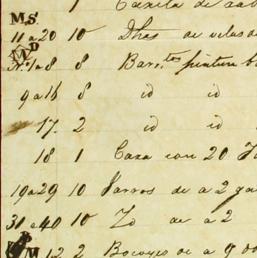 1 Caxita de
M.S. 11 a 20 10 Dhas de velas de
D M Nº 1 a 8 8 Barr.tes pintura
9 a 16 8 id id
17. 2 id id
18 1 Caxa con 20
19 a 29 10 Jarros de a 2 ga
31 a 40 10 Id de a 2
M 12 2 Bocoyes de a 9 do